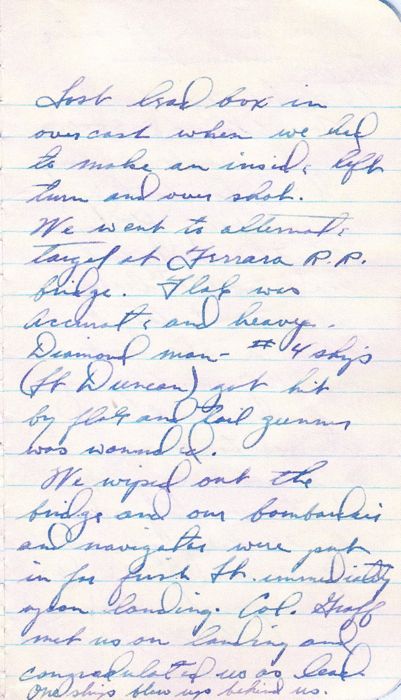 Lost lead box in
overcast when we had
to make an inside left
turn and over shot.
We went to alternate
target at Ferrara R.R.
bridge. Flak was
accurate and heavy.
Diamond man - #4 ship
(Lt Duncan) got hit
by flak and tail gunner
was wounded.
We wiped out the
bridge and our bombardier
and navigator were put
in for first Lt. immediately
upon landing. Col. Graff
met us on landing and
congradulated us as lead.
One ship blew up behind us.